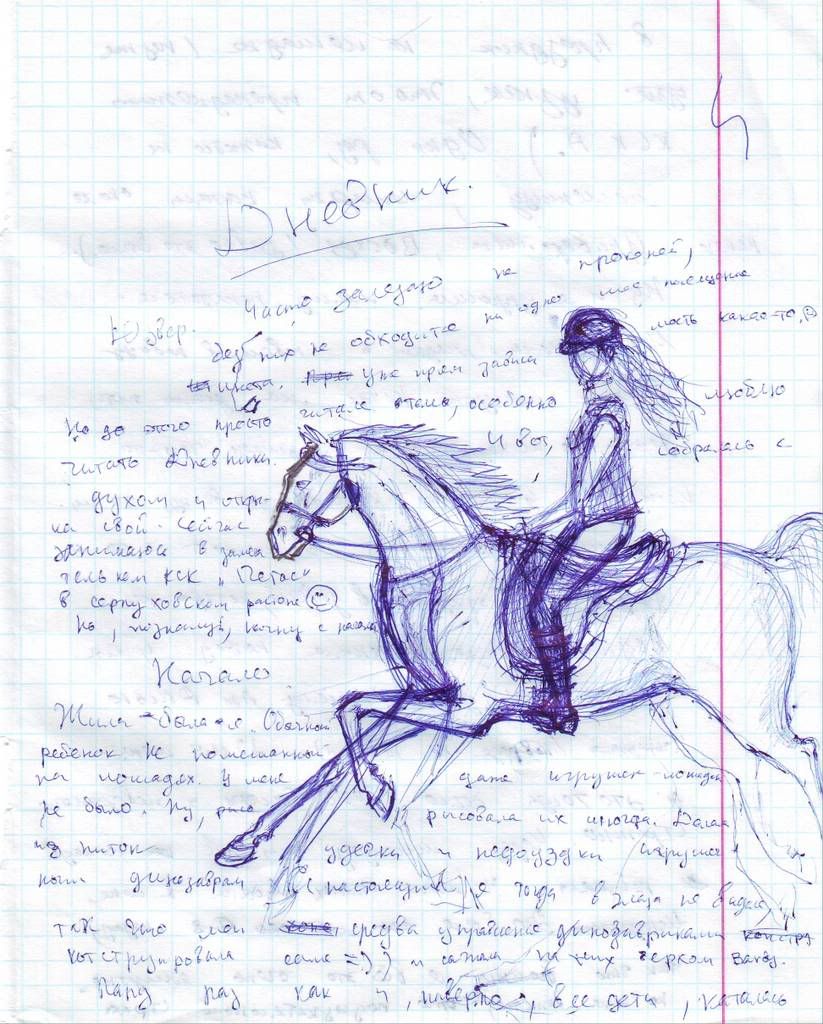 Дневник.
Юзер. Часто залезаю на проконей,
без них не обходится ни одно мое посещение
инета. уже прям зависимость какая-то.
Но до этого просто читала темы, особенно люблю
читать Дневники. И вот, собралась с
духом и откры-
ла свой. Сейчас
занимаюсь в замеча
тельном КСК "Пегас"
в серпуховском районе
Но, пожалуй, начну с начала
Начало
Жила-была я. Обычный
ребенок не помешанный
на лошадях. У меня даже игрушек-лошадей
не было. Ну, рисовала их иногда. Делала
из ниток уздечки и недоуздки игрушеч
ным динозаврам (настоящий я тогда в глаза не видела,
так что мои средства управления динозавриками
конструировала сама =) ) и сажала на них верхом Barby.
Пару раз как и, наверно, все дети, каталась